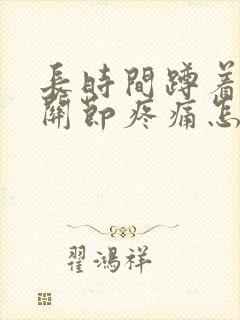 長時間蹲着
關節疼痛怎
翟鴻祥